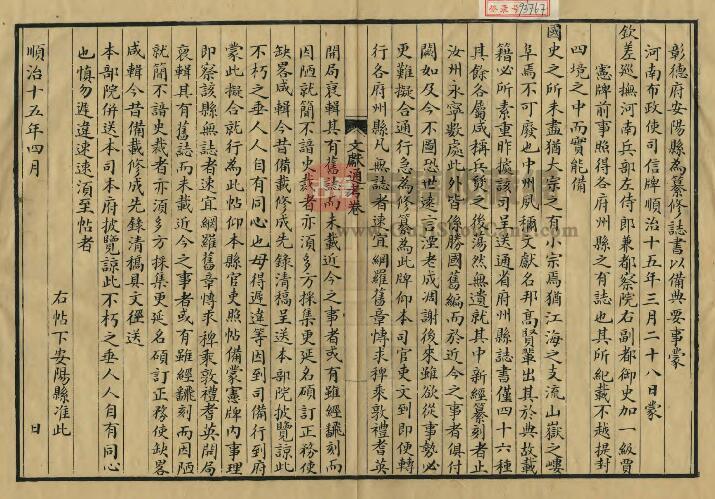 登录号 93767
彰德府安陽縣為纂修誌書以備典要事蒙
河南布政使司信牌順治十五年三月二十八日蒙
欽差巡撫河南兵部左侍郎兼都察院右副都御史加一級賈
憲牌前事照得各府州縣之有誌也其所紀載不越提封
四境之中而實能備
國史之所未盡猶大宗之有小宗焉猶江海之支流山嶽之嶁
阜焉不可廢也中州夙稱文獻名邦髙賢輩出其於典故載
籍必所素重昨據該司呈送通省府州縣誌書僅四十六種
其餘各屬咸稱兵燹之後蕩然無遺就其中新經纂刻者止
汝州永寧數處此外皆係勝國舊編而於近今之事者俱付
闕如及今不圖恐世遠言湮老成凋謝後來雖欲從事勢必
更難擬合通行急為修纂為此牌仰本司官吏文到即便轉
行各府州縣凡無誌者速宜網羅舊章慱求稗乘敦禮耆英
文獻通考卷
開局裒輯其有舊誌而未載近今之事者或有雖經鋟刻而
因陋就簡不諳史裁者亦須多方採集更延名碩訂正務使
缺畧咸備今昔備載修成先錄清稿呈送本部院披覽諒此
不朽之垂人人自有同心也毋得遲違等因到司備行到府
蒙此擬合就行為此帖仰本縣官吏照帖備蒙憲牌內事理
即察該縣無誌者速宜網羅舊章慱求稗乘敦禮耆英開局
裒輯其有舊誌而未載近今之事者或有雖經鋟刻而因陋
就簡不諳史裁者亦須多方採集更延名碩訂正務使缺畧
咸輯今昔備載修成先錄清稿具文徑送
本部院併送本司本府披覽諒此不朽之垂人人自有同心
也慎勿遲違速速須至帖者
右帖下安陽縣准此
順治十五年四月　日